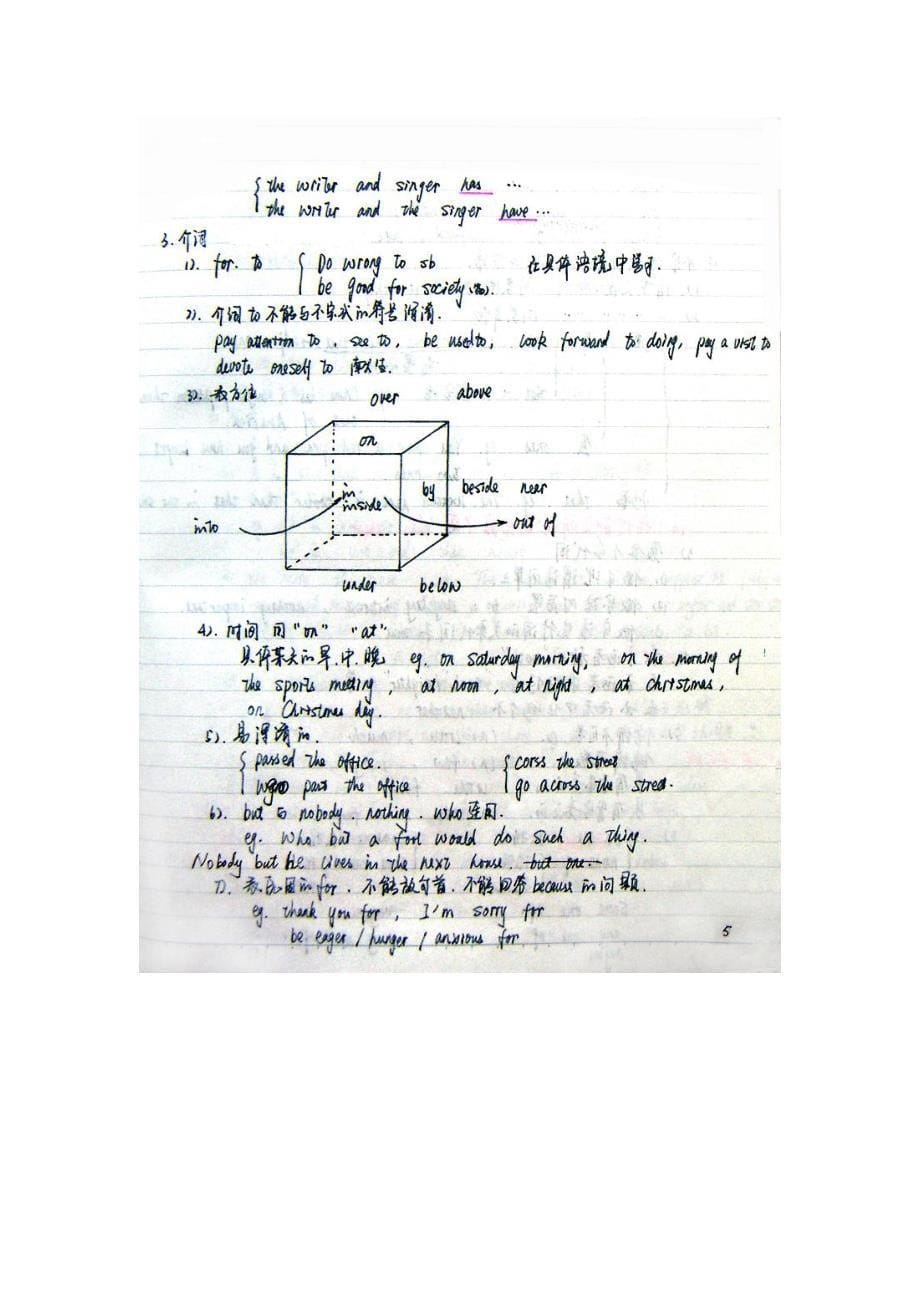 the writer and singer has ...
the writer and the singer have ...
3. 介词
1). for. to Do wrong to sb 在具体语境中学习.
be good for society
2). 介词to不能与不定式的符号混淆.
pay attention to see to, be used to, look forward to doing, pay a visit to
devote oneself to 献身.
3). 表方位
over above
on
in
inside by beside near
into out of
under below
4). 时间 用 "on" "at"
具体某天的早.中.晚 eg. on saturday morning, on the morning of
the sports meeting, at noon, at night, at christmas,
on Christmas day.
5). 易混淆的.
passed the office. corss the street
go past the office go across the street.
6). but 与 nobody. nothing. who连用.
eg. who but a fool would do such a thing.
Nobody but he lives in the next house. but one.
7). 表原因的for. 不能放句首. 不能回答because的问题.
eg. thank you for, I'm sorry for
be eager / hunger / anxious for
5